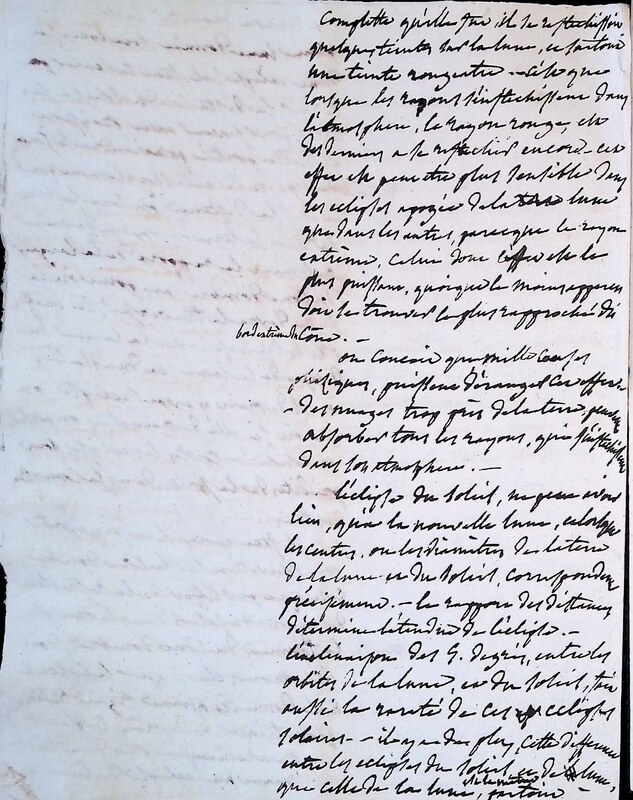 Complette qu'elle soit, il se reflechissoit
quelque teinte sur la lune, et surtout
une teinte rougeatre - c'est que
lorsque les rayons s'inflechissent dans
l'atmosphere, le rayon rouge, est
des derniers a se reflechir encore - cet
effet est peut etre plus sensible dans
les eclipses apogée de la lune
que dans les autres, parceque le rayon
extrême, celui dont l'effet est le
plus puissant, quoique le moins apparent
doit se trouver le plus rapproché du
bord extrême du Cône. -
on concoit que mille causes
phisiques, puissent déranger ces effets
- des nuages trop près de la terre, peuvent
absorber tous les rayons, qui s'inflechissent
dans son atmosphere. -
l'éclipse du soleil, ne peut avoir
lieu, qu'à la nouvelle lune, et lorsque
les centres, ou les diamètres de la terre
de la lune et du soleil, correspondent
précisément. - le rapport des distances
détermine l'étendue de l'éclipse. -
l'inclinaison des 5. degrés, entre les
orbites de la lune, et du soleil, fait
aussi la rareté de ces eclipses
solaires - il y a de plus, cette difference
entre les eclipses du soleil et de lune,
que celle de la lune, surtout -